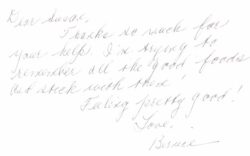 Dear Susan,
Thanks so much for
your help. I'm trying to
remember all the good foods
and stick with them!
Feeling pretty good!
Love,
Bernice